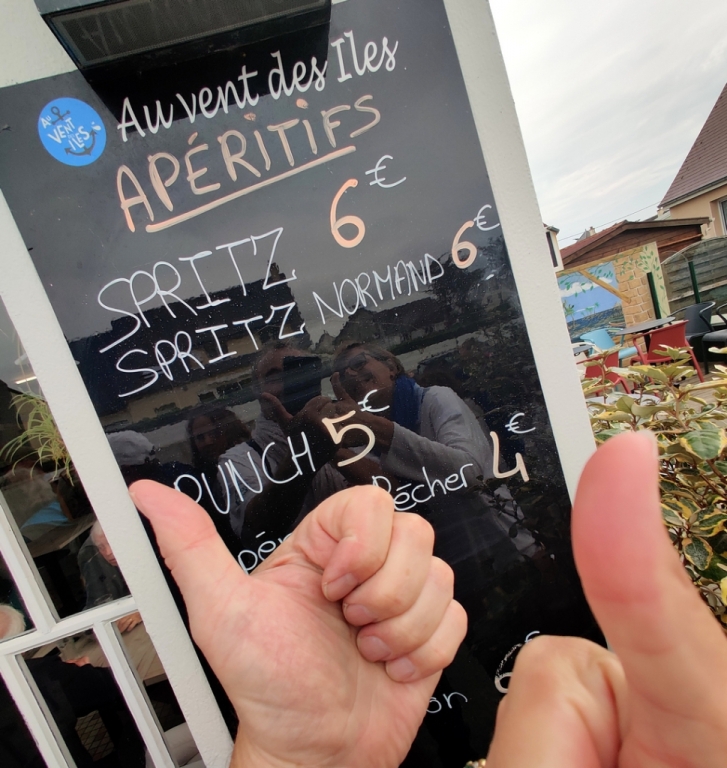 Au vent des Iles
AU VENT DES ILES
APÉRITIFS
SPRITZ 6€
SPRITZ NORMAND 6€
PUNCH 5€
Pécher 4€